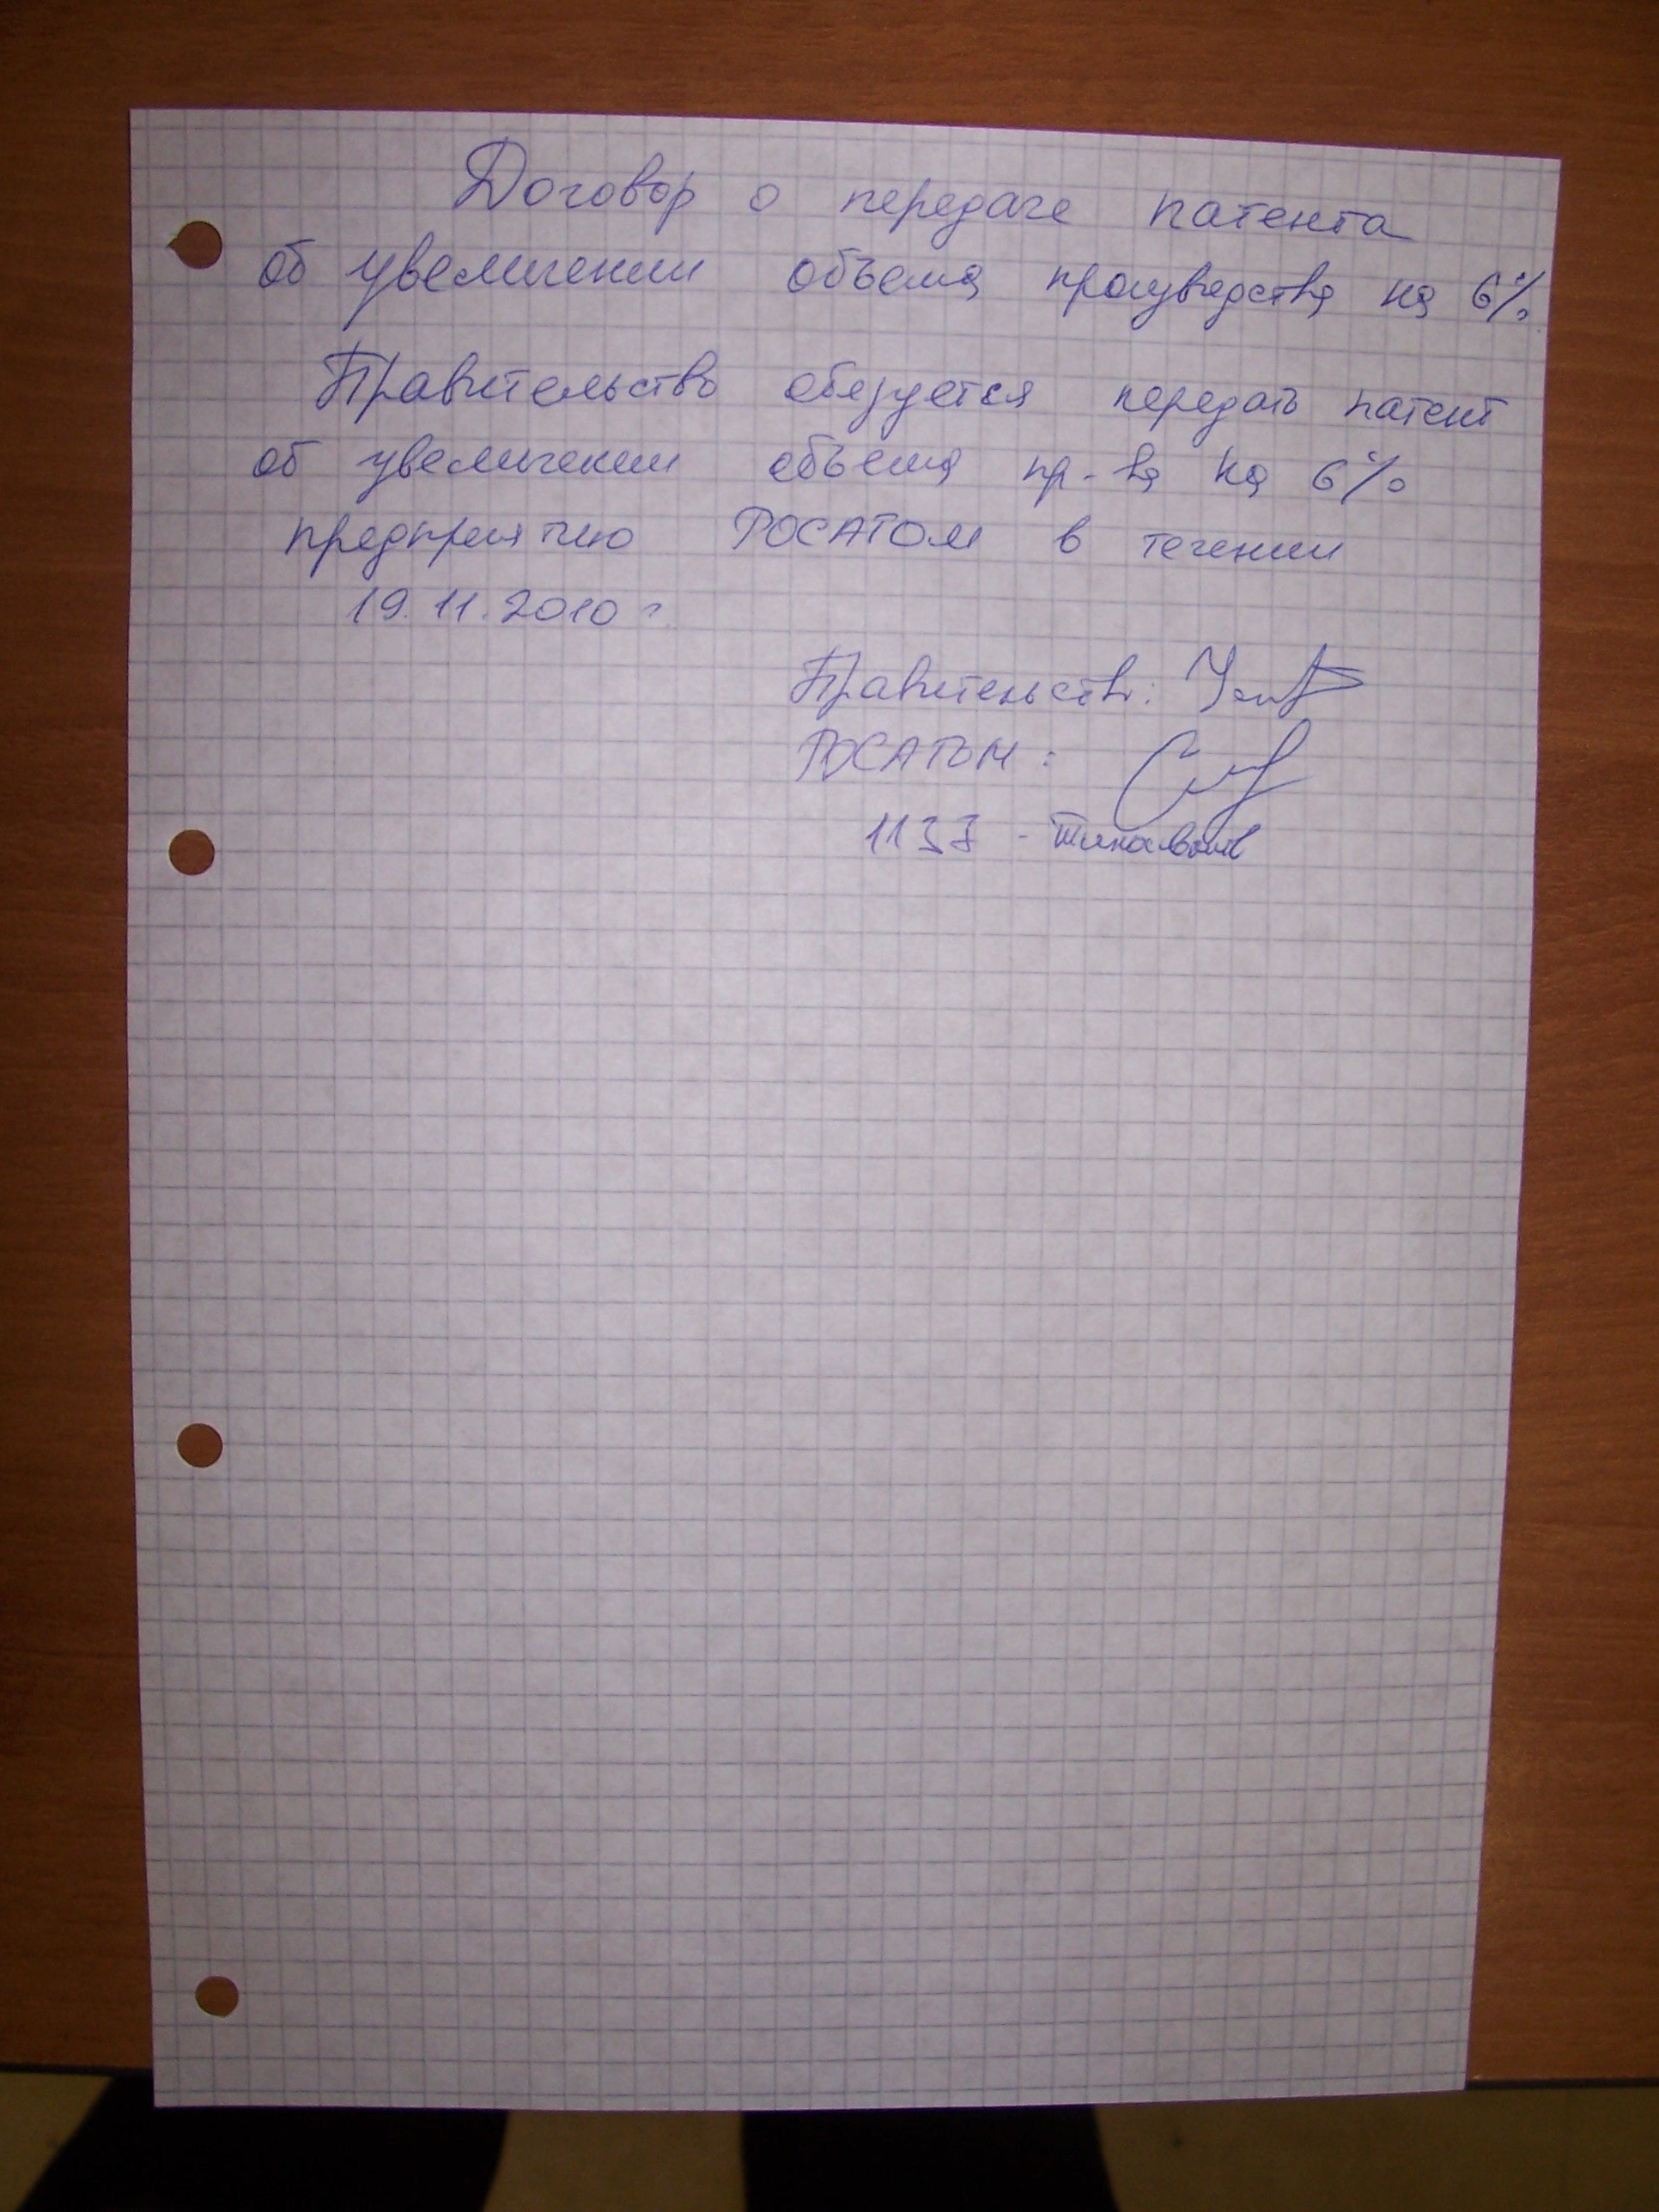 Договор о передаче патента
об увеличении объема производства на 6%
Правительство обязуется передать патент
об увеличении объема пр-ва на 6%
предприятию РОСАТОМ в течении
19.11.2010 г
Правительств:
РОСАТОМ: